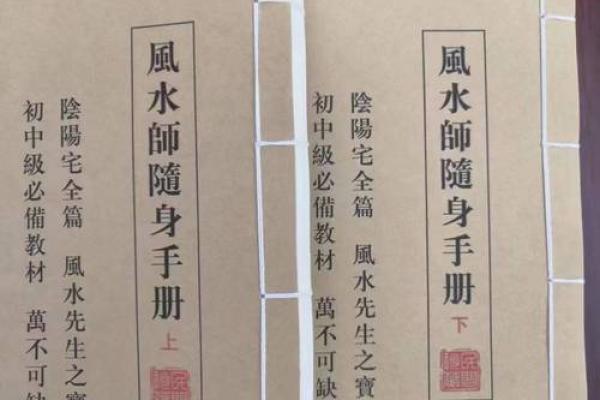 風水師隨身手册
上
陰陽宅全篇 風水先生之寶
初中級必備教材 萬不可缺
風水師隨身手册
下
陰陽宅全篇 風水先生之寶
初中級必備教材 萬不可缺